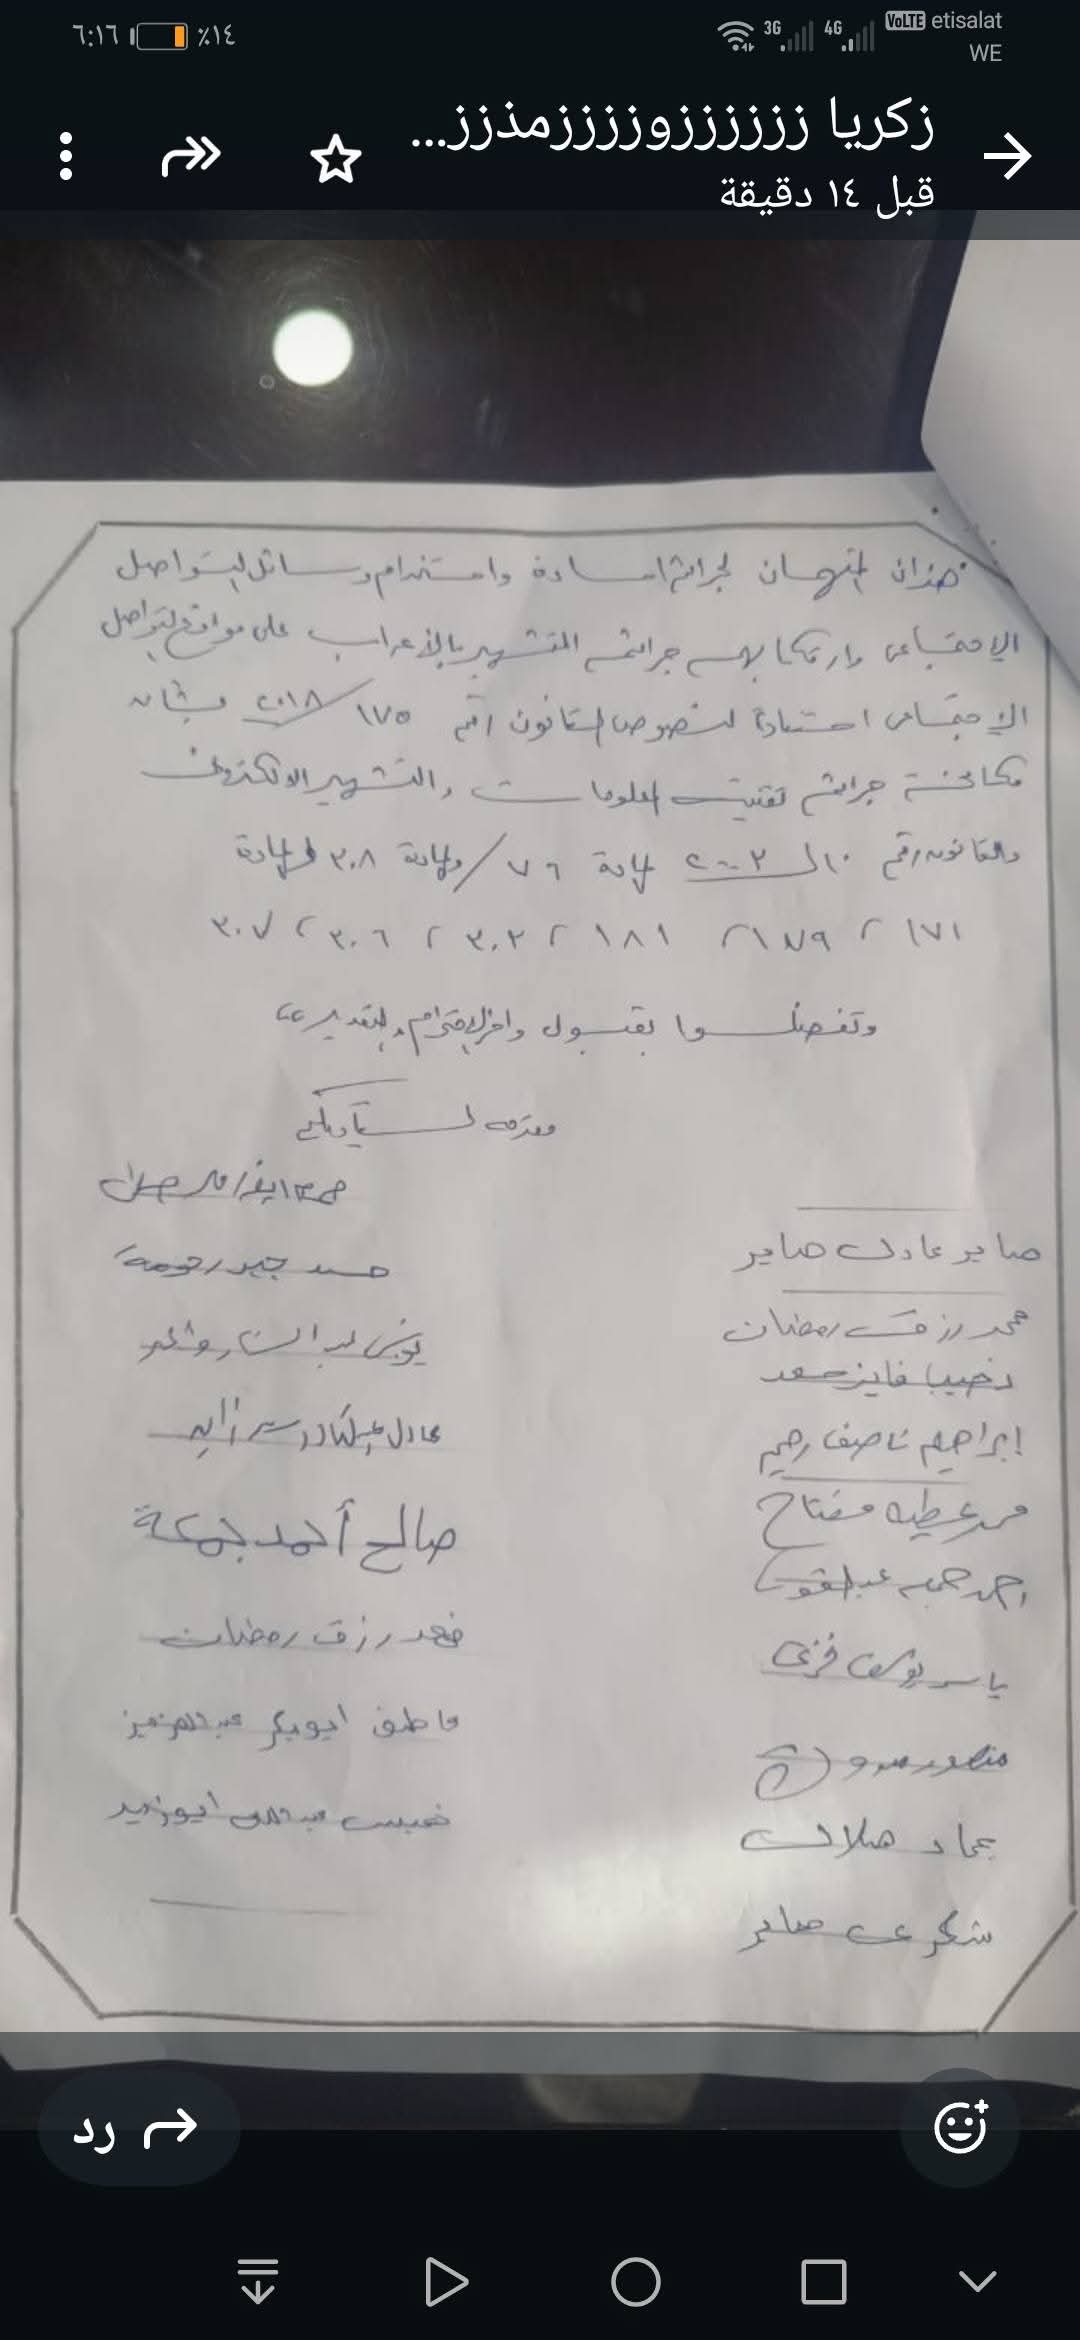 ٦:١٦ ٪١٤ 3G 4G VoLTE etisalat
WE
زكريا زززززززوززززمذزز...
قبل ١٤ دقيقة
هذان المتهمان لجرائم اساءة واستخدام وسائل التواصل
الاجتماعى وارتكابهم جرائم التشهير بالأعراب على مواقع التواصل
الاجتماعى استنادا لنصوص القانون رقم ١٧٥/٢٠١٨ بشان
مكافحة جرائم تقنية المعلومات والتشهير الالكترونى
والقانون رقم ١٠ لـ ٢٠٠٣ المادة ٧٦/ والمادة ٣٠٨ والمادة
١٧١ ، ١٧٩ ، ١٨١ ، ٣٠٢ ، ٣٠٦ ، ٣٠٧
وتفضلوا بقبول وافر الاحترام والتقدير
مقدمه لسيادتكم
صابر عادل صابر
حمد جبر رحومة
محمد رزق رمضان
يونس عبد الستار
نصيب فايز سعد
عادل عبدالقادر
إبراهيم ناصف رحيم
محمد عطيه مفتاح
صالح أحمد جمعة
احمد حميه عبدالقوى
محمد رزق رمضان
ياسر يوسف فرج
عاطف ابوبكر عبدالعزيز
منصور
خميس ابوزيد
عماد هلال
شكرى صابر
رد